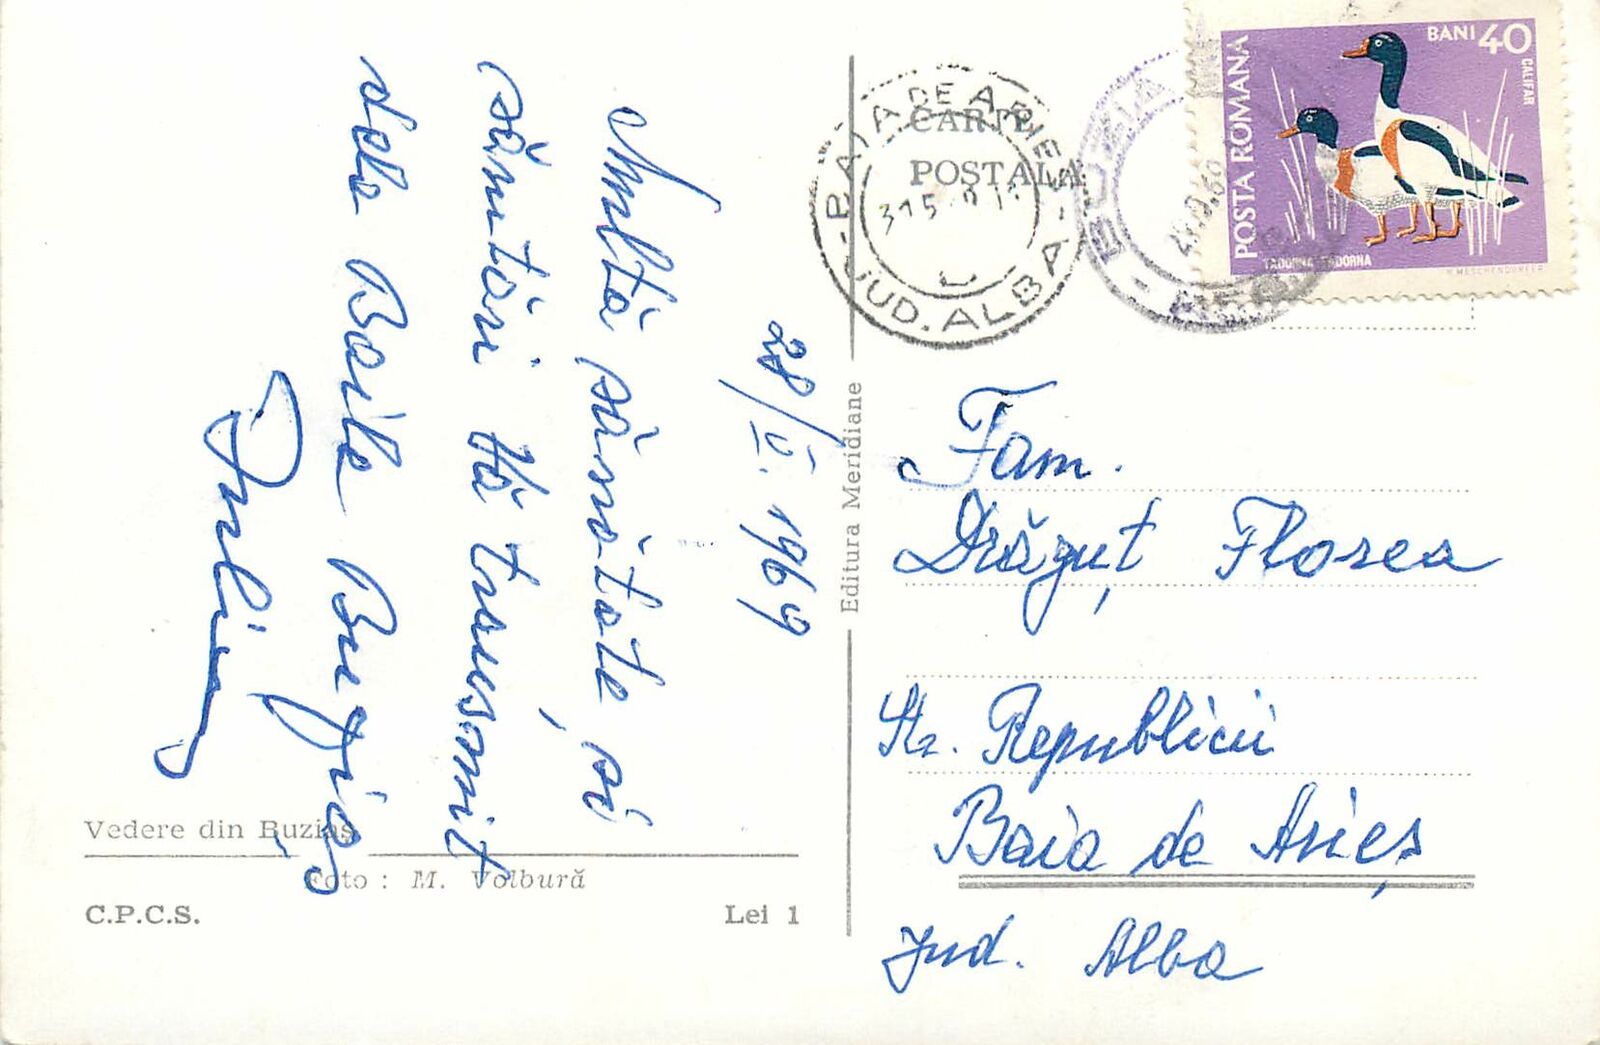 28/V. 1969
Multă sănătate, și
sărutări Vă trasnsmit
dela Baile Buziaș
Iulian
Vedere din Buziaș
Foto : M. Volbură
C.P.C.S.
Lei 1
Editura Meridiane
CARTE
POȘTALĂ
BAIA DE ARIEȘ
JUD. ALBA
BUZIAȘ
POSTA ROMANA
BANI 40
CALIFAR
TADORNA TADORNA
Fam.
Drăguț Florea
Str. Republicii
Baia de Arieș
Jud. Alba